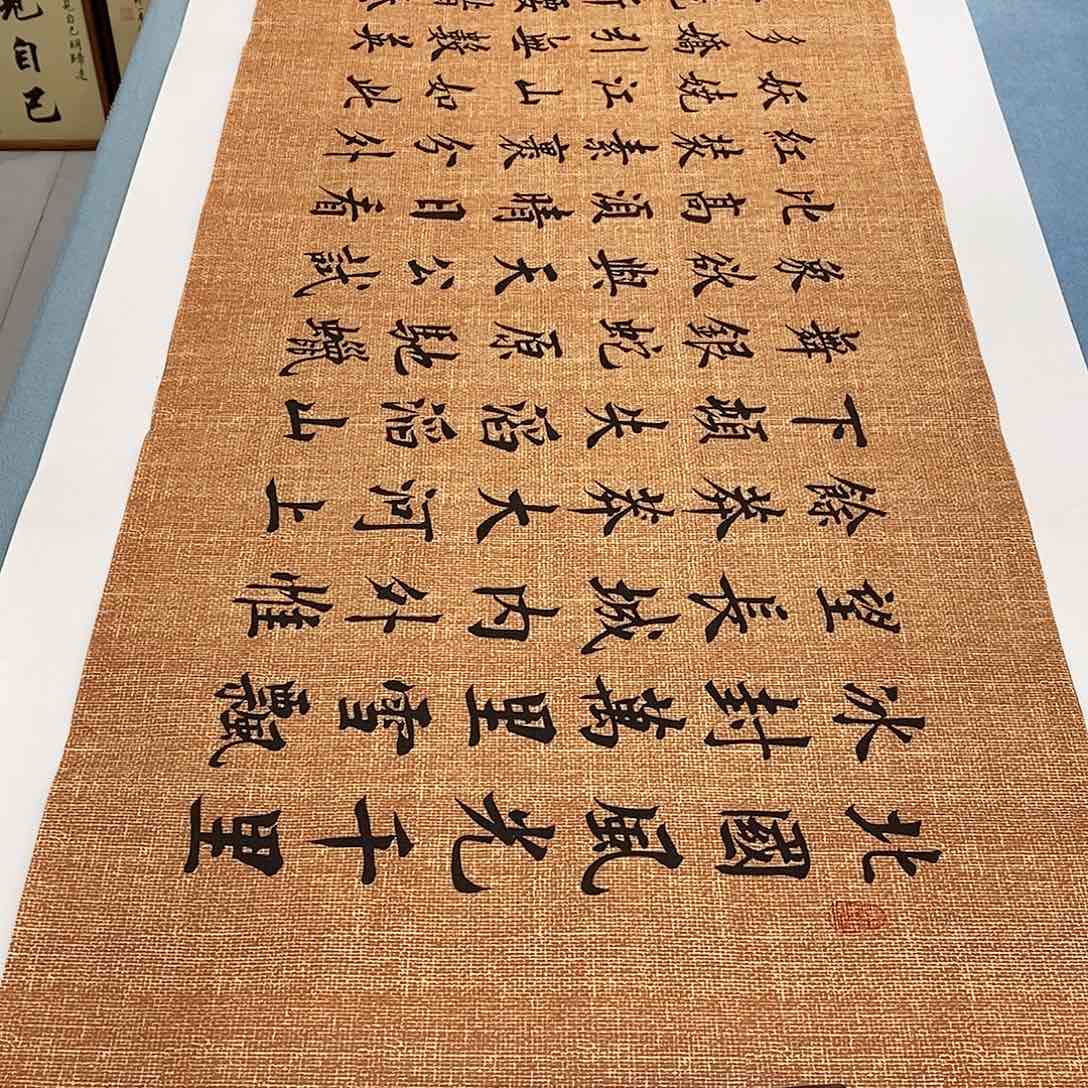 北國風光千里
冰封萬里雪飄
望長城內外惟
餘莽莽大河上
下頓失滔滔山
舞銀蛇原馳蠟
象欲與天公試
比高須晴日看
紅裝素裹分外
妖嬈江山如此
多嬌引無數英
自己